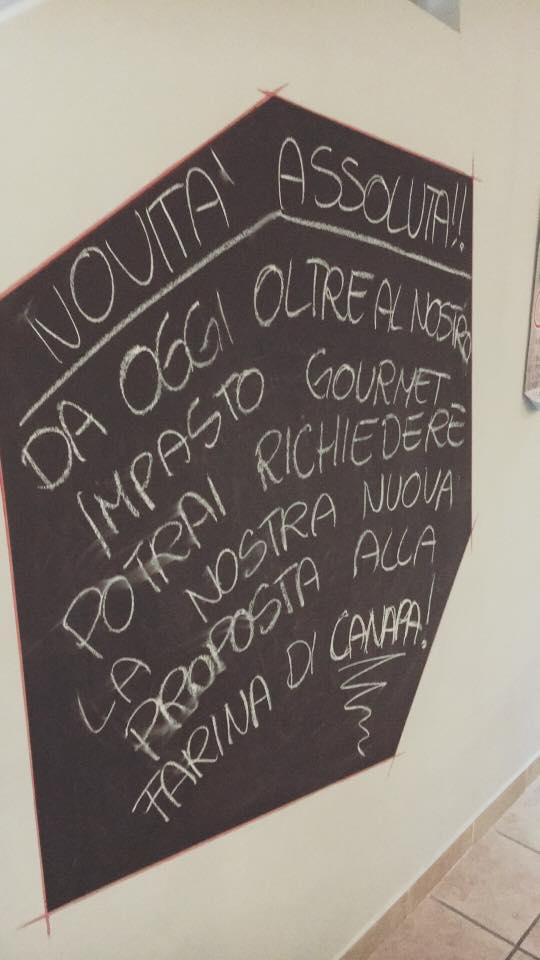 NOVITA' ASSOLUTA!!
DA OGGI OLTRE AL NOSTRO
IMPASTO GOURMET
POTRAI RICHIEDERE
LA NOSTRA NUOVA
PROPOSTA ALLA
FARINA DI CANAPA!